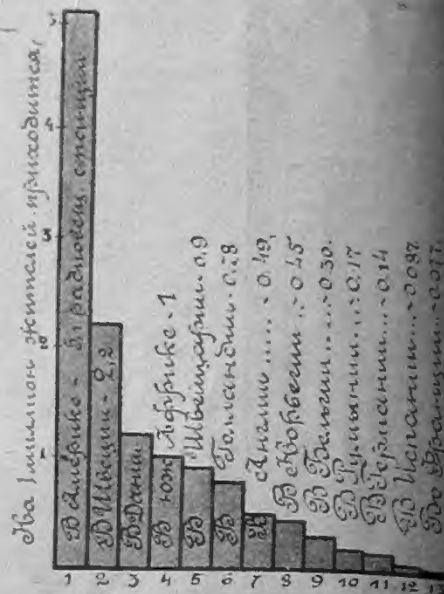 На 1 миллион жителей приходится,
5
4
3
2
1
В Америке - 5,1 радиовещ. станции
В Швеции - 2,2
В Дании
В юж Африке - 1
В Швейцарии - 0.9
В Голандии - 0.78
Англии ..... - 0.49,
В Норвегии .. - 0.45
В Бельгии .... - 0.30.
В Румынии ... - 0.17
В Германии ... - 0.14
В Испании ... - 0.087.
Во Франции
1 2 3 4 5 6 7 8 9 10 11 12 13